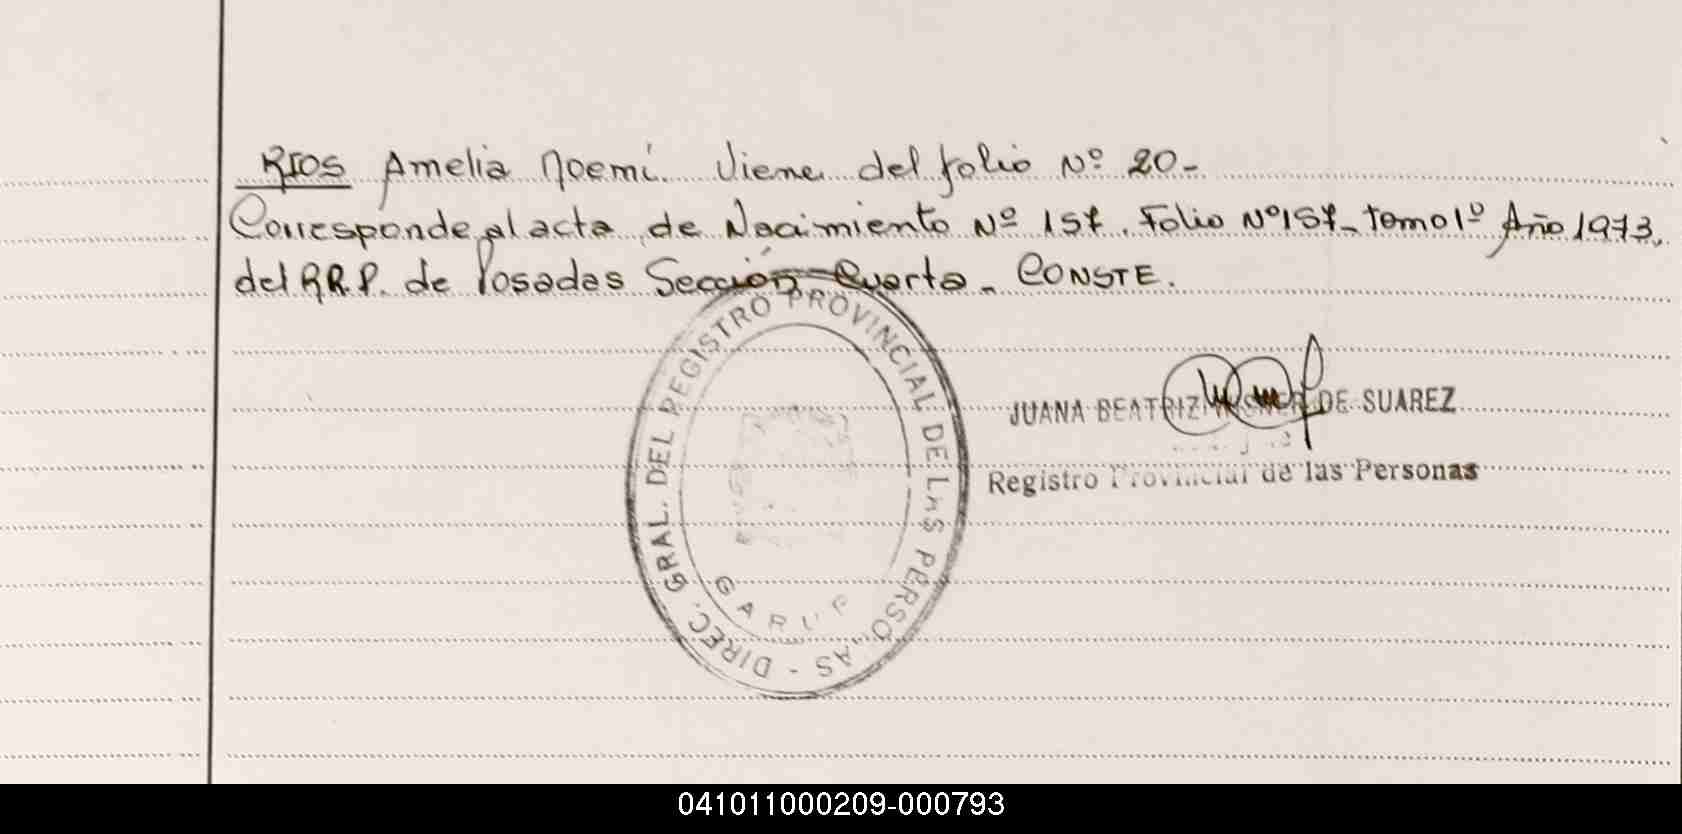 RIOS Amelia Noemí. Viene del folio Nº 20-
Corresponde al acta de Nacimiento Nº 157. Folio Nº 157- tomo 1º Año 1973.
del R.R.P. de Posadas Sección Cuarta - CONSTE.
DIREC. GRAL. DEL REGISTRO PROVINCIAL DE LAS PERSONAS -
JUANA BEATRIZ DE SUAREZ
Registro Provincial de las Personas
041011000209-000793